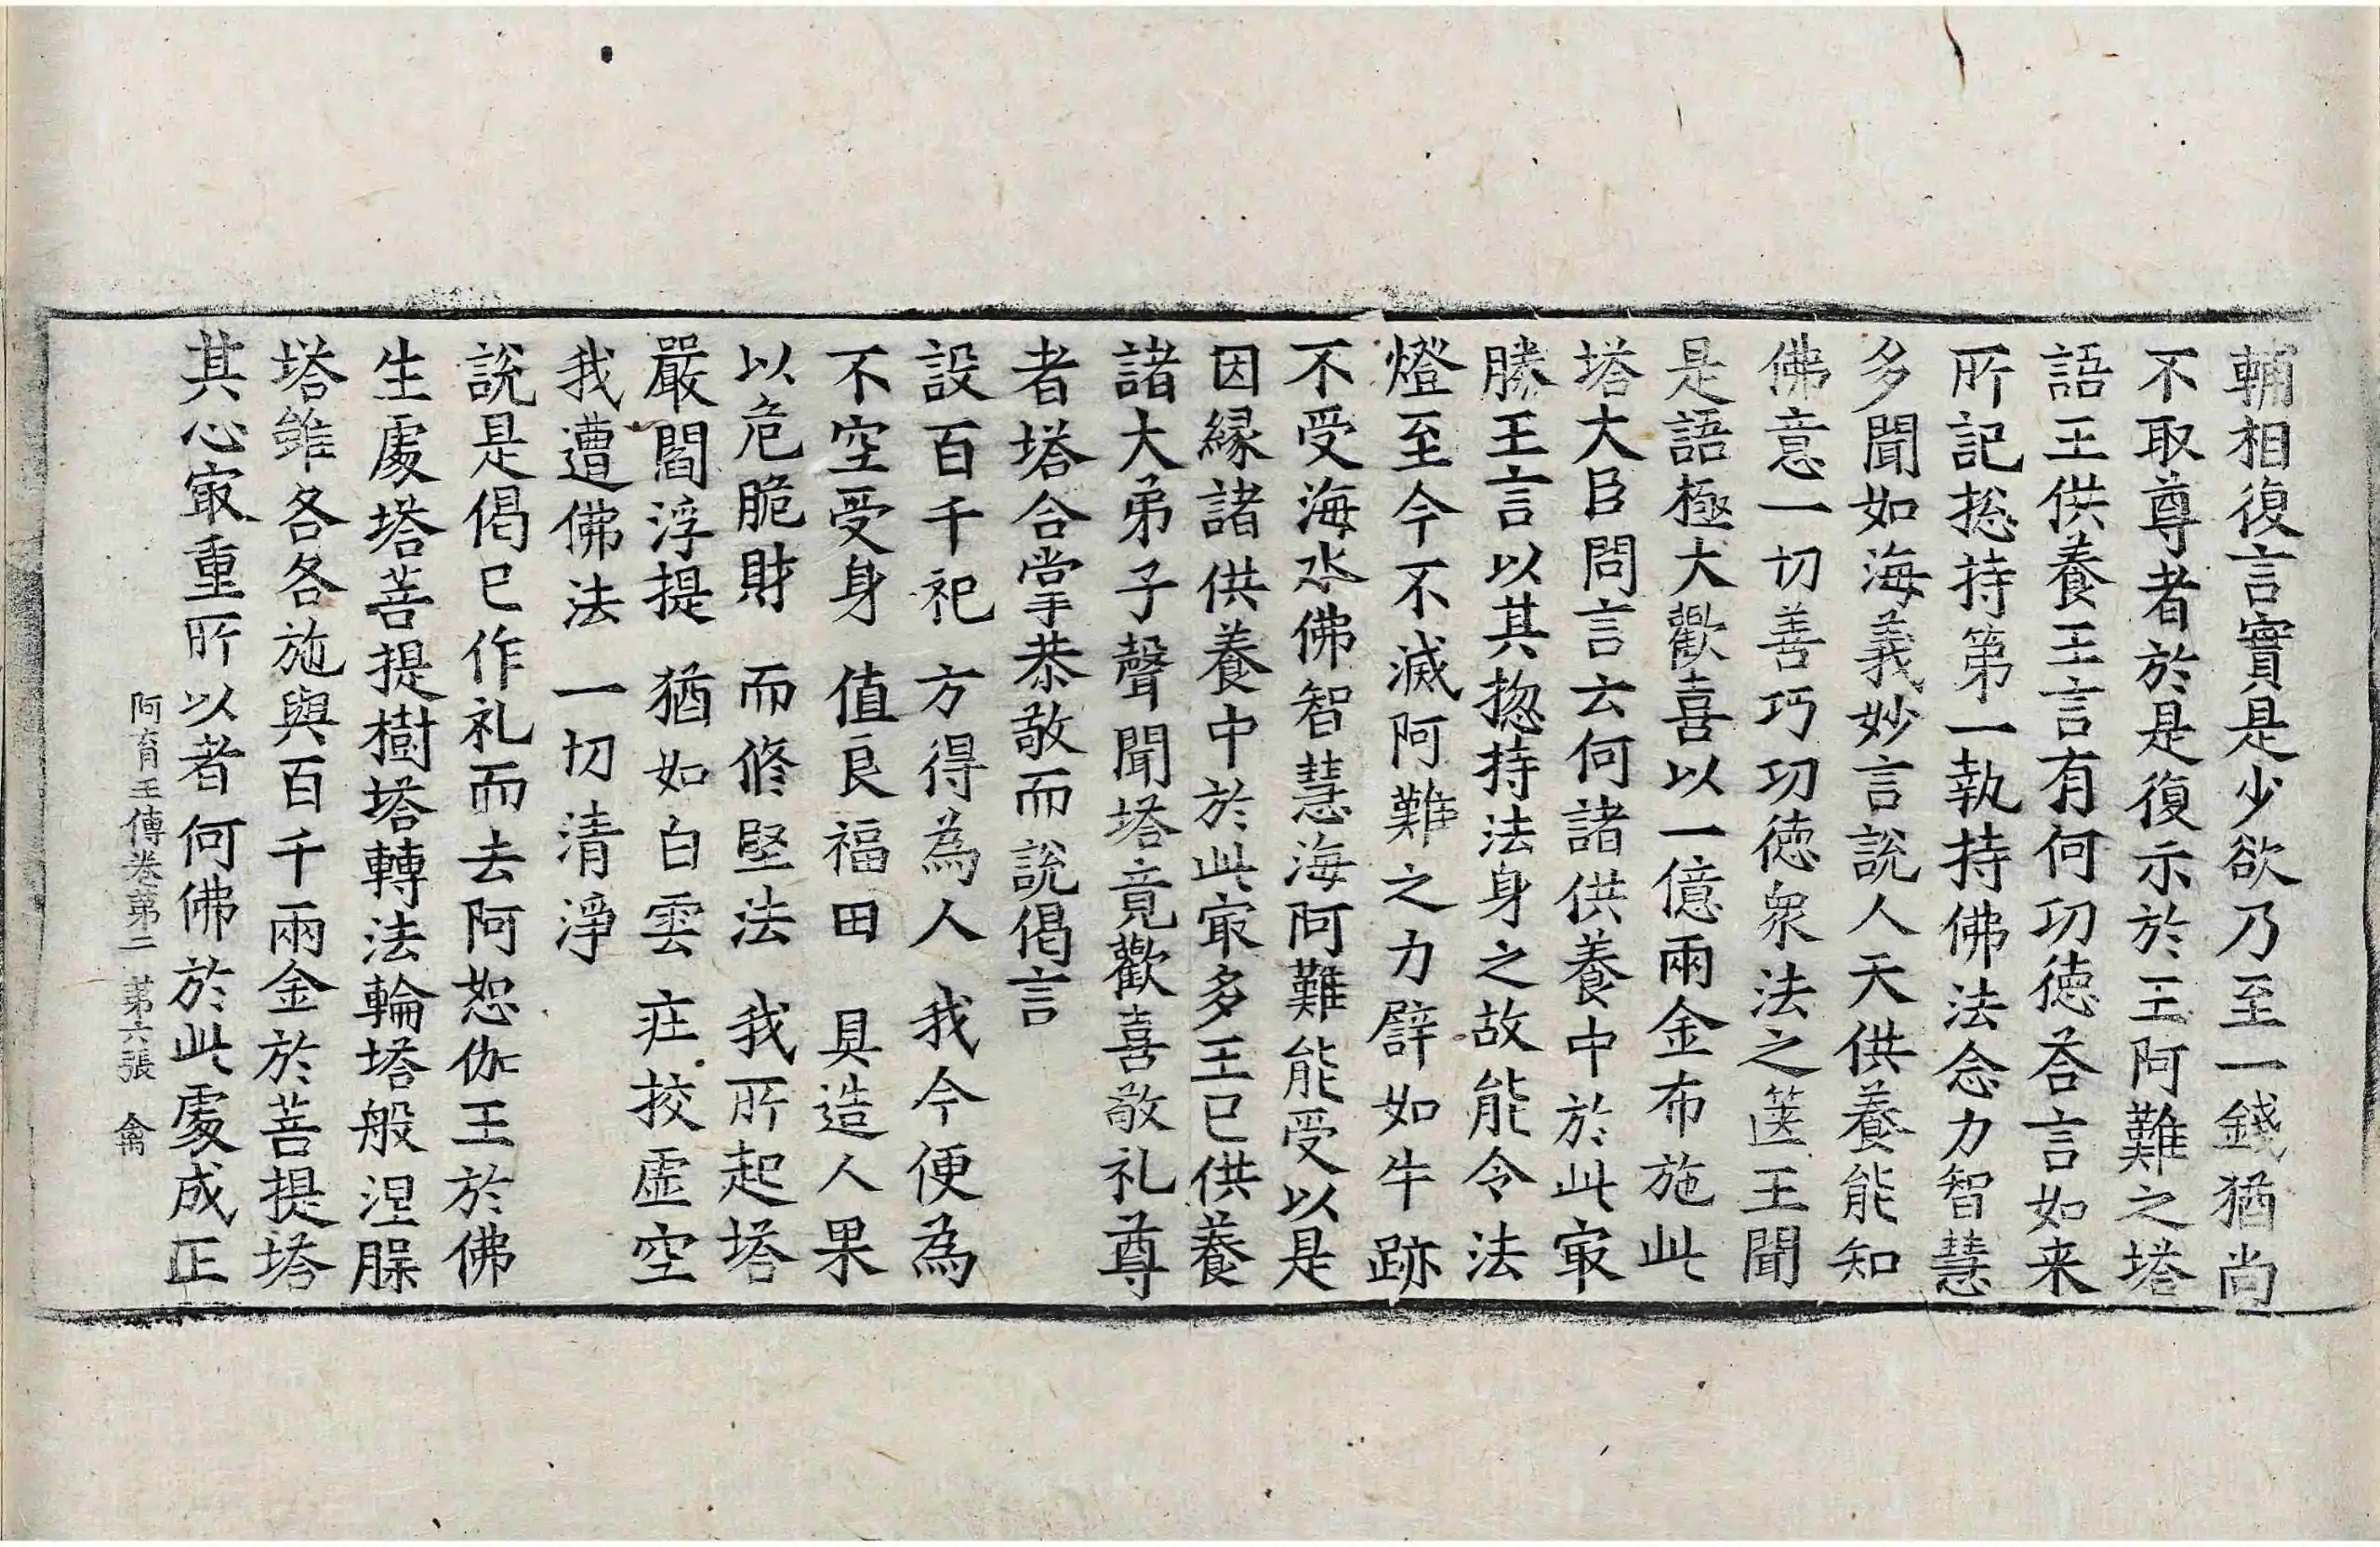 輔相復言實是少欲乃至一錢猶尚
不取尊者於是復示於王阿難之塔
語王供養王言有何功徳荅言如来
所記揔持第一執持佛法念力智慧
多聞如海義妙言說人天供養能知
佛意一切善巧功徳衆法之篋王聞
是語極大歡喜以一億兩金布施此
塔大臣問言云何諸供養中於此㝡
勝王言以其揔持法身之故能令法
燈至今不滅阿難之力譬如牛跡
不受海水佛智慧海阿難能受以是
因縁諸供養中於此㝡多王已供養
諸大弟子聲聞塔竟歡喜敬礼尊
者塔合掌恭敬而說偈言
設百千祀 方得為人 我今便為
不空受身 值良福田 具造人果
以危脆財 而修堅法 我所起塔
嚴閻浮提 猶如白雲 庄挍虛空
我遭佛法 一切清淨
說是偈已作礼而去阿恕伽王於佛
生處塔菩提樹塔轉法輪塔般涅槃
塔雖各各施與百千兩金於菩提塔
其心㝡重所以者何佛於此處成正
阿育王傳卷第二 第六張 禽